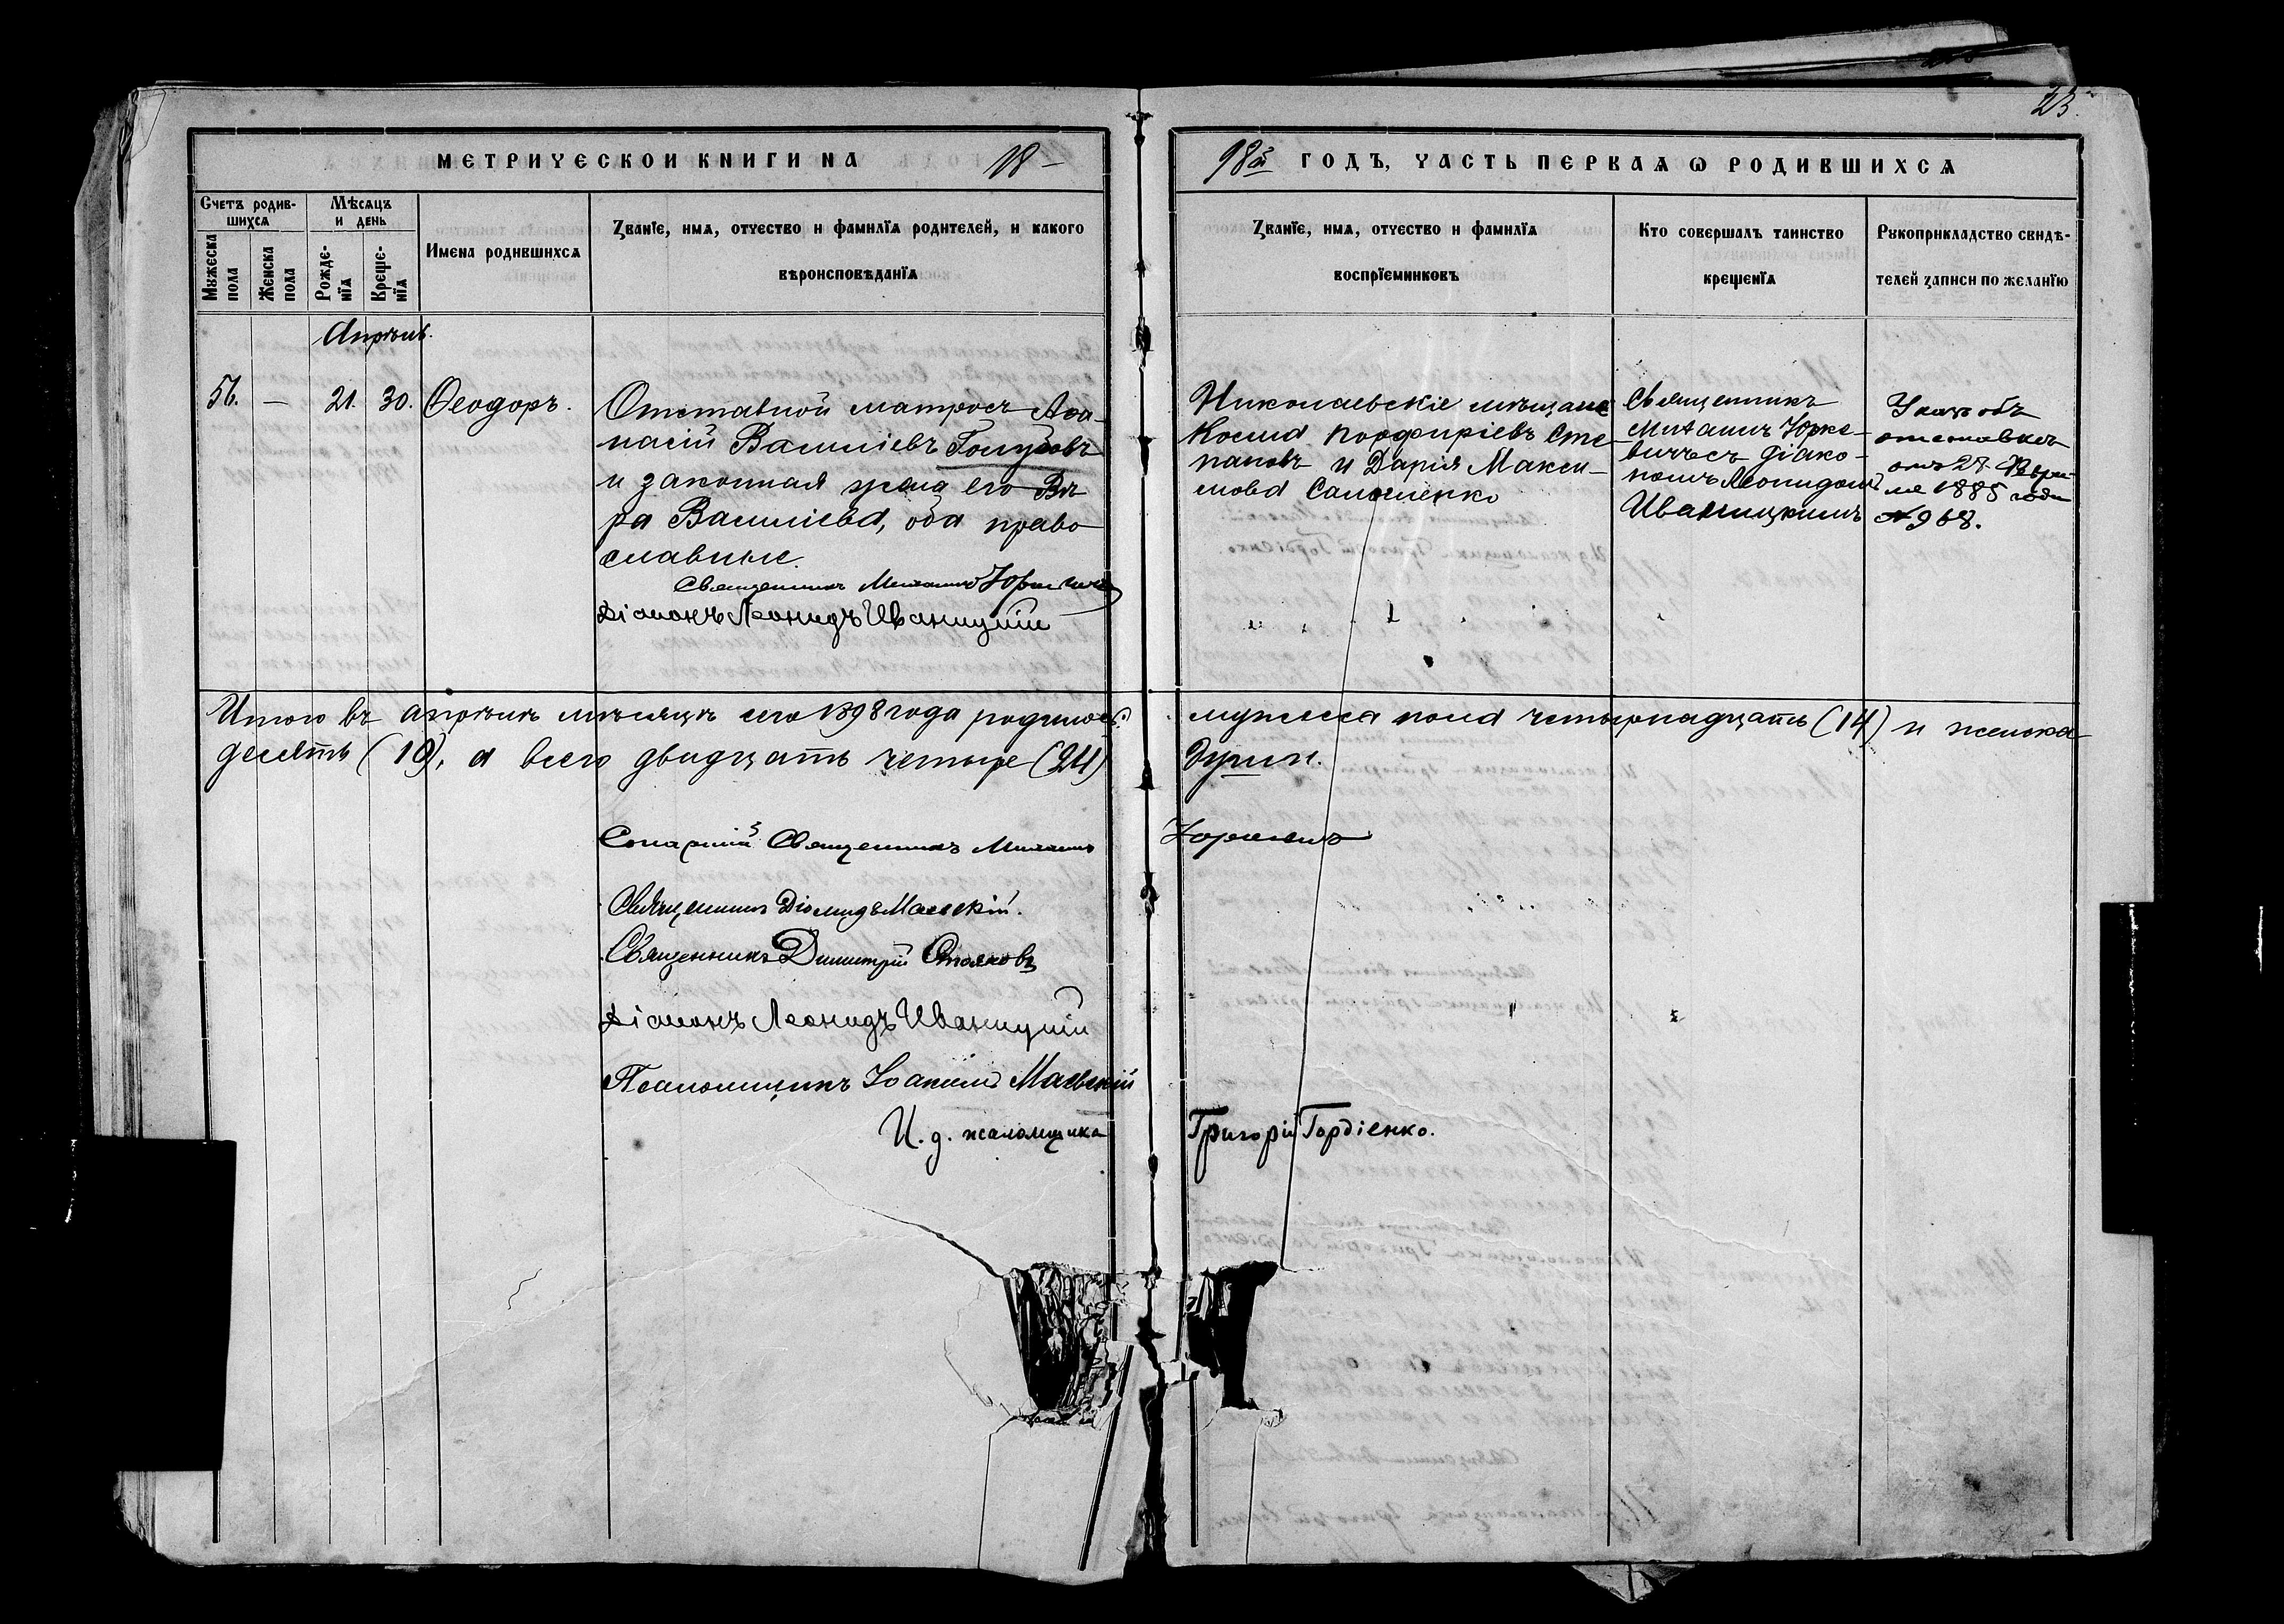 23.
МЕТРИЧЕСКОИ КНИГИ NА 18-
98й ГОДЪ, ЧАСТЬ ПЕРВАѦ Ѡ РОДИВШИХСѦ
Счетъ родив-
шихсѧ
Мѣсѧцъ
и день
Мꙋжеска
пола
Женска
пола
Рожде-
нїѧ
Креще-
нїѧ
Имена родившихсѧ
Ꙁванїе, имѧ, отчество и фамилїѧ родителей, и какого
вѣроисповѣданїѧ
Ꙁванїе, имѧ, отчество и фамилїѧ
воспрїемниковъ
Кто совершалъ таинство
крещенїѧ
Рꙋкоприкладство свидѣ-
телей ꙁаписи по желанїю
Апрѣль.
56. — 21. 30. Ѳеодоръ.
Отставной матросъ Аѳа-
насій Василіевъ Голубовъ
и законная жена его Вѣ
ра Василіева, оба право
славные.
Священникъ Михаилъ Юркевичъ
Діаконъ Леонидъ Иваницкій
Николаевскіе мѣщане
Косма Порфиріевъ Сте-
пановъ и Дарія Макси-
мова
Священникъ
Михаилъ Юрке-
вичъ съ діако-
номъ Леонидомъ
Иваницкимъ
Указъ объ
отставкѣ
отъ 27
1885 года
№ 968.
Итого въ апрѣлѣ мѣсяцѣ сего 1898 года родилось: мужеска пола четырнадцать (14) и женска
десять (10), а всего двадцать четыре (24) души.
Священникъ Михаилъ Юркевичъ
Священникъ Діомидъ Маевскій.
Священникъ Димитрій Стояковъ
Діаконъ Леонидъ Иваницкій
Псаломщикъ Іоакимъ Маевскій
И. д. псаломщика Григорій Гордіенко.